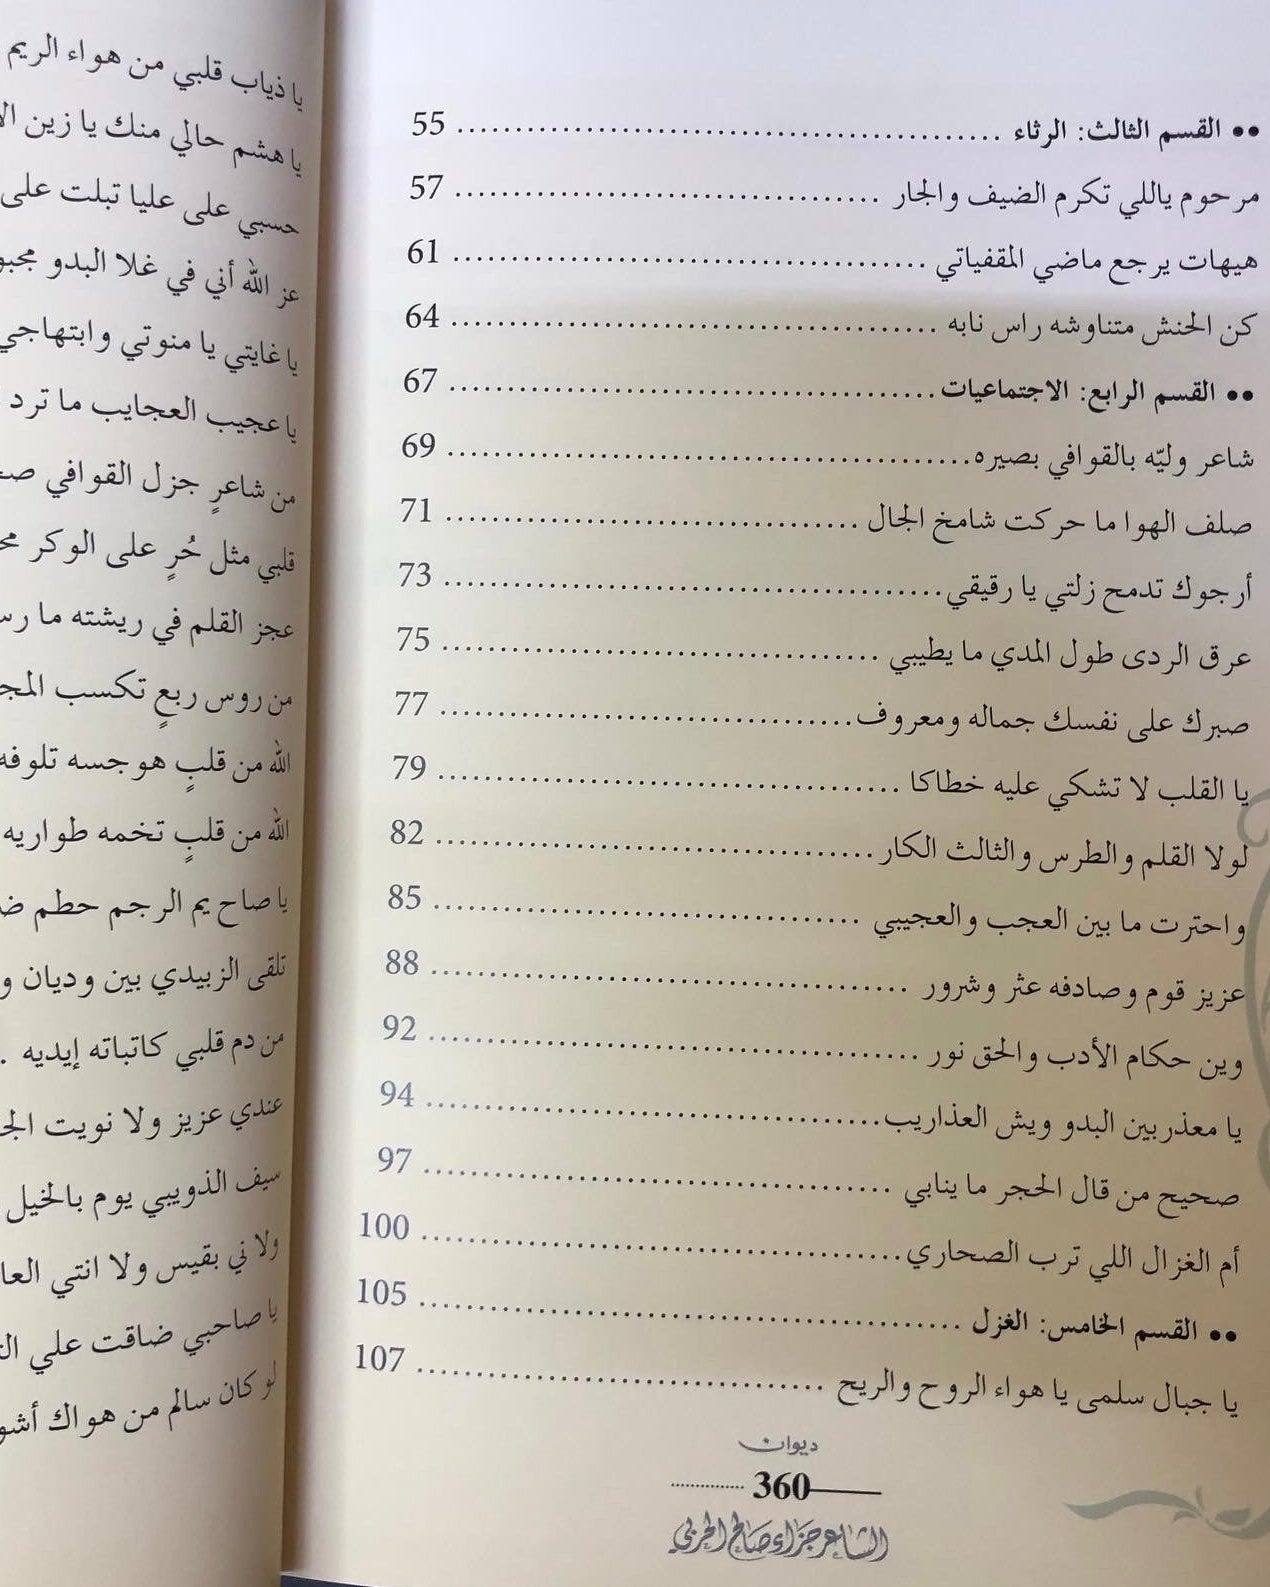 •• القسم الثالث: الرثاء ........................................ 55
مرحوم ياللي تكرم الضيف والجار ........................................ 57
هيهات يرجع ماضي المقفياتي ........................................ 61
كن الحنش متناوشه راس نابه ........................................ 64
•• القسم الرابع: الاجتماعيات ........................................ 67
شاعر وليّه بالقوافي بصيره ........................................ 69
صلف الهوا ما حركت شامخ الجال ........................................ 71
أرجوك تدمح زلتي يا رقيقي ........................................ 73
عرق الردى طول المدي ما يطيبي ........................................ 75
صبرك على نفسك جماله ومعروف ........................................ 77
يا القلب لا تشكي عليه خطاكا ........................................ 79
لولا القلم والطرس والثالث الكار ........................................ 82
واحترت ما بين العجب والعجيبي ........................................ 85
عزيز قوم وصادفه عثر وشرور ........................................ 88
وين حكام الأدب والحق نور ........................................ 92
يا معذربين البدو ويش العذاريب ........................................ 94
صحيح من قال الحجر ما ينابي ........................................ 97
أم الغزال اللي ترب الصحاري ........................................ 100
•• القسم الخامس: الغزل ........................................ 105
يا جبال سلمى يا هواء الروح والريح ........................................ 107
ديوان
360
الشاعر جزاء صالح الحربي
يا ذياب قلبي من هواء الريم
يا هشم حالي منك يا زين
حسبي على عليا تبلت على
عز الله أني في غلا البدو
يا غايتي يا منوتي وابتهاجي
يا عجيب العجايب ما ترد
من شاعرٍ جزل القوافي
قلبي مثل حُرٍ على الوكر
عجز القلم في ريشته ما
من روس ربعٍ تكسب
الله من قلبٍ هوجسه تلوفه
الله من قلبٍ تخمه طواريه
يا صاح يم الرجم حطم
تلقى الزبيدي بين وديان و
من دم قلبي كاتباته إيديه .
عندي عزيز ولا نويت
سيف الذويبي يوم بالخيل
ولا ني بقيس ولا انتي
يا صاحبي ضاقت علي
لو كان سالم من هواك